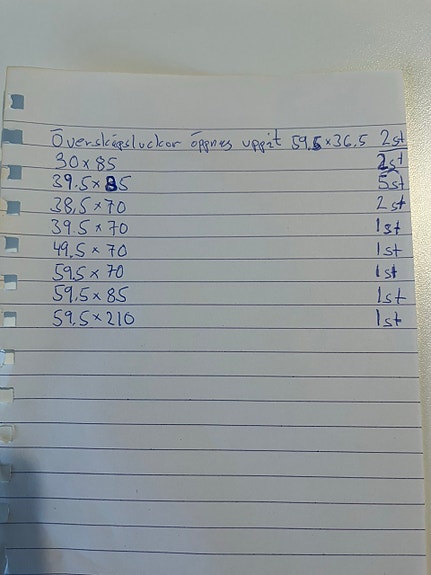 Överskåpsluckor öppnas uppåt 59,5 x 36,5 2st
30 x 85 2st
39,5 x 85 5st
38,5 x 70 2st
39,5 x 70 1st
49,5 x 70 1st
59,5 x 70 1st
59,5 x 85 1st
59,5 x 210 1st